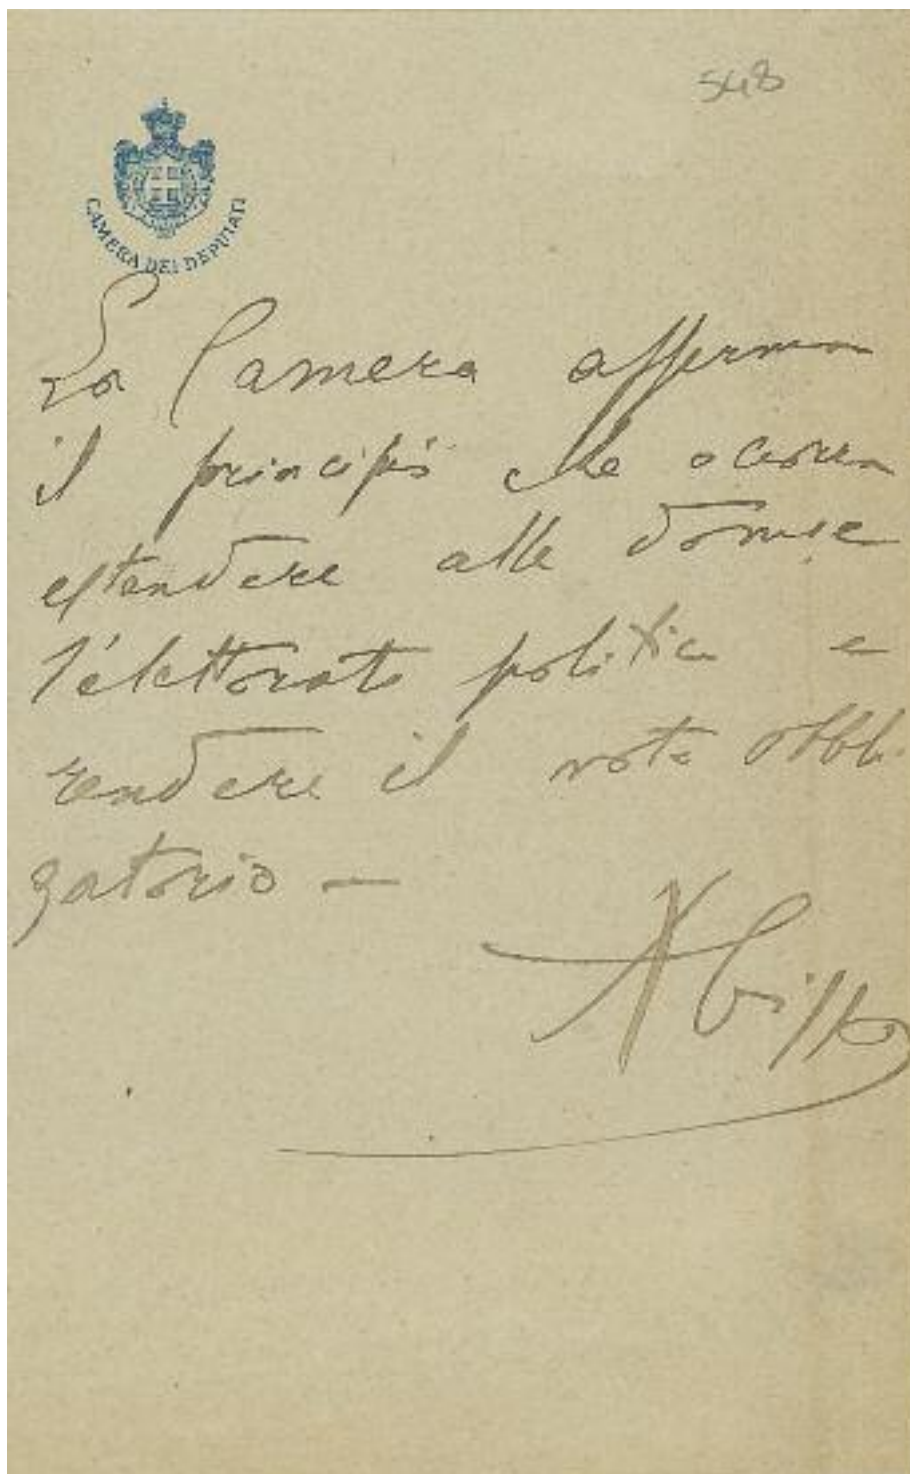 548
CAMERA DEI DEPUTATI
La Camera afferma
il principio che occorra
estendere alle donne
l'elettorato politico e
rendere il voto obbli
gatorio —